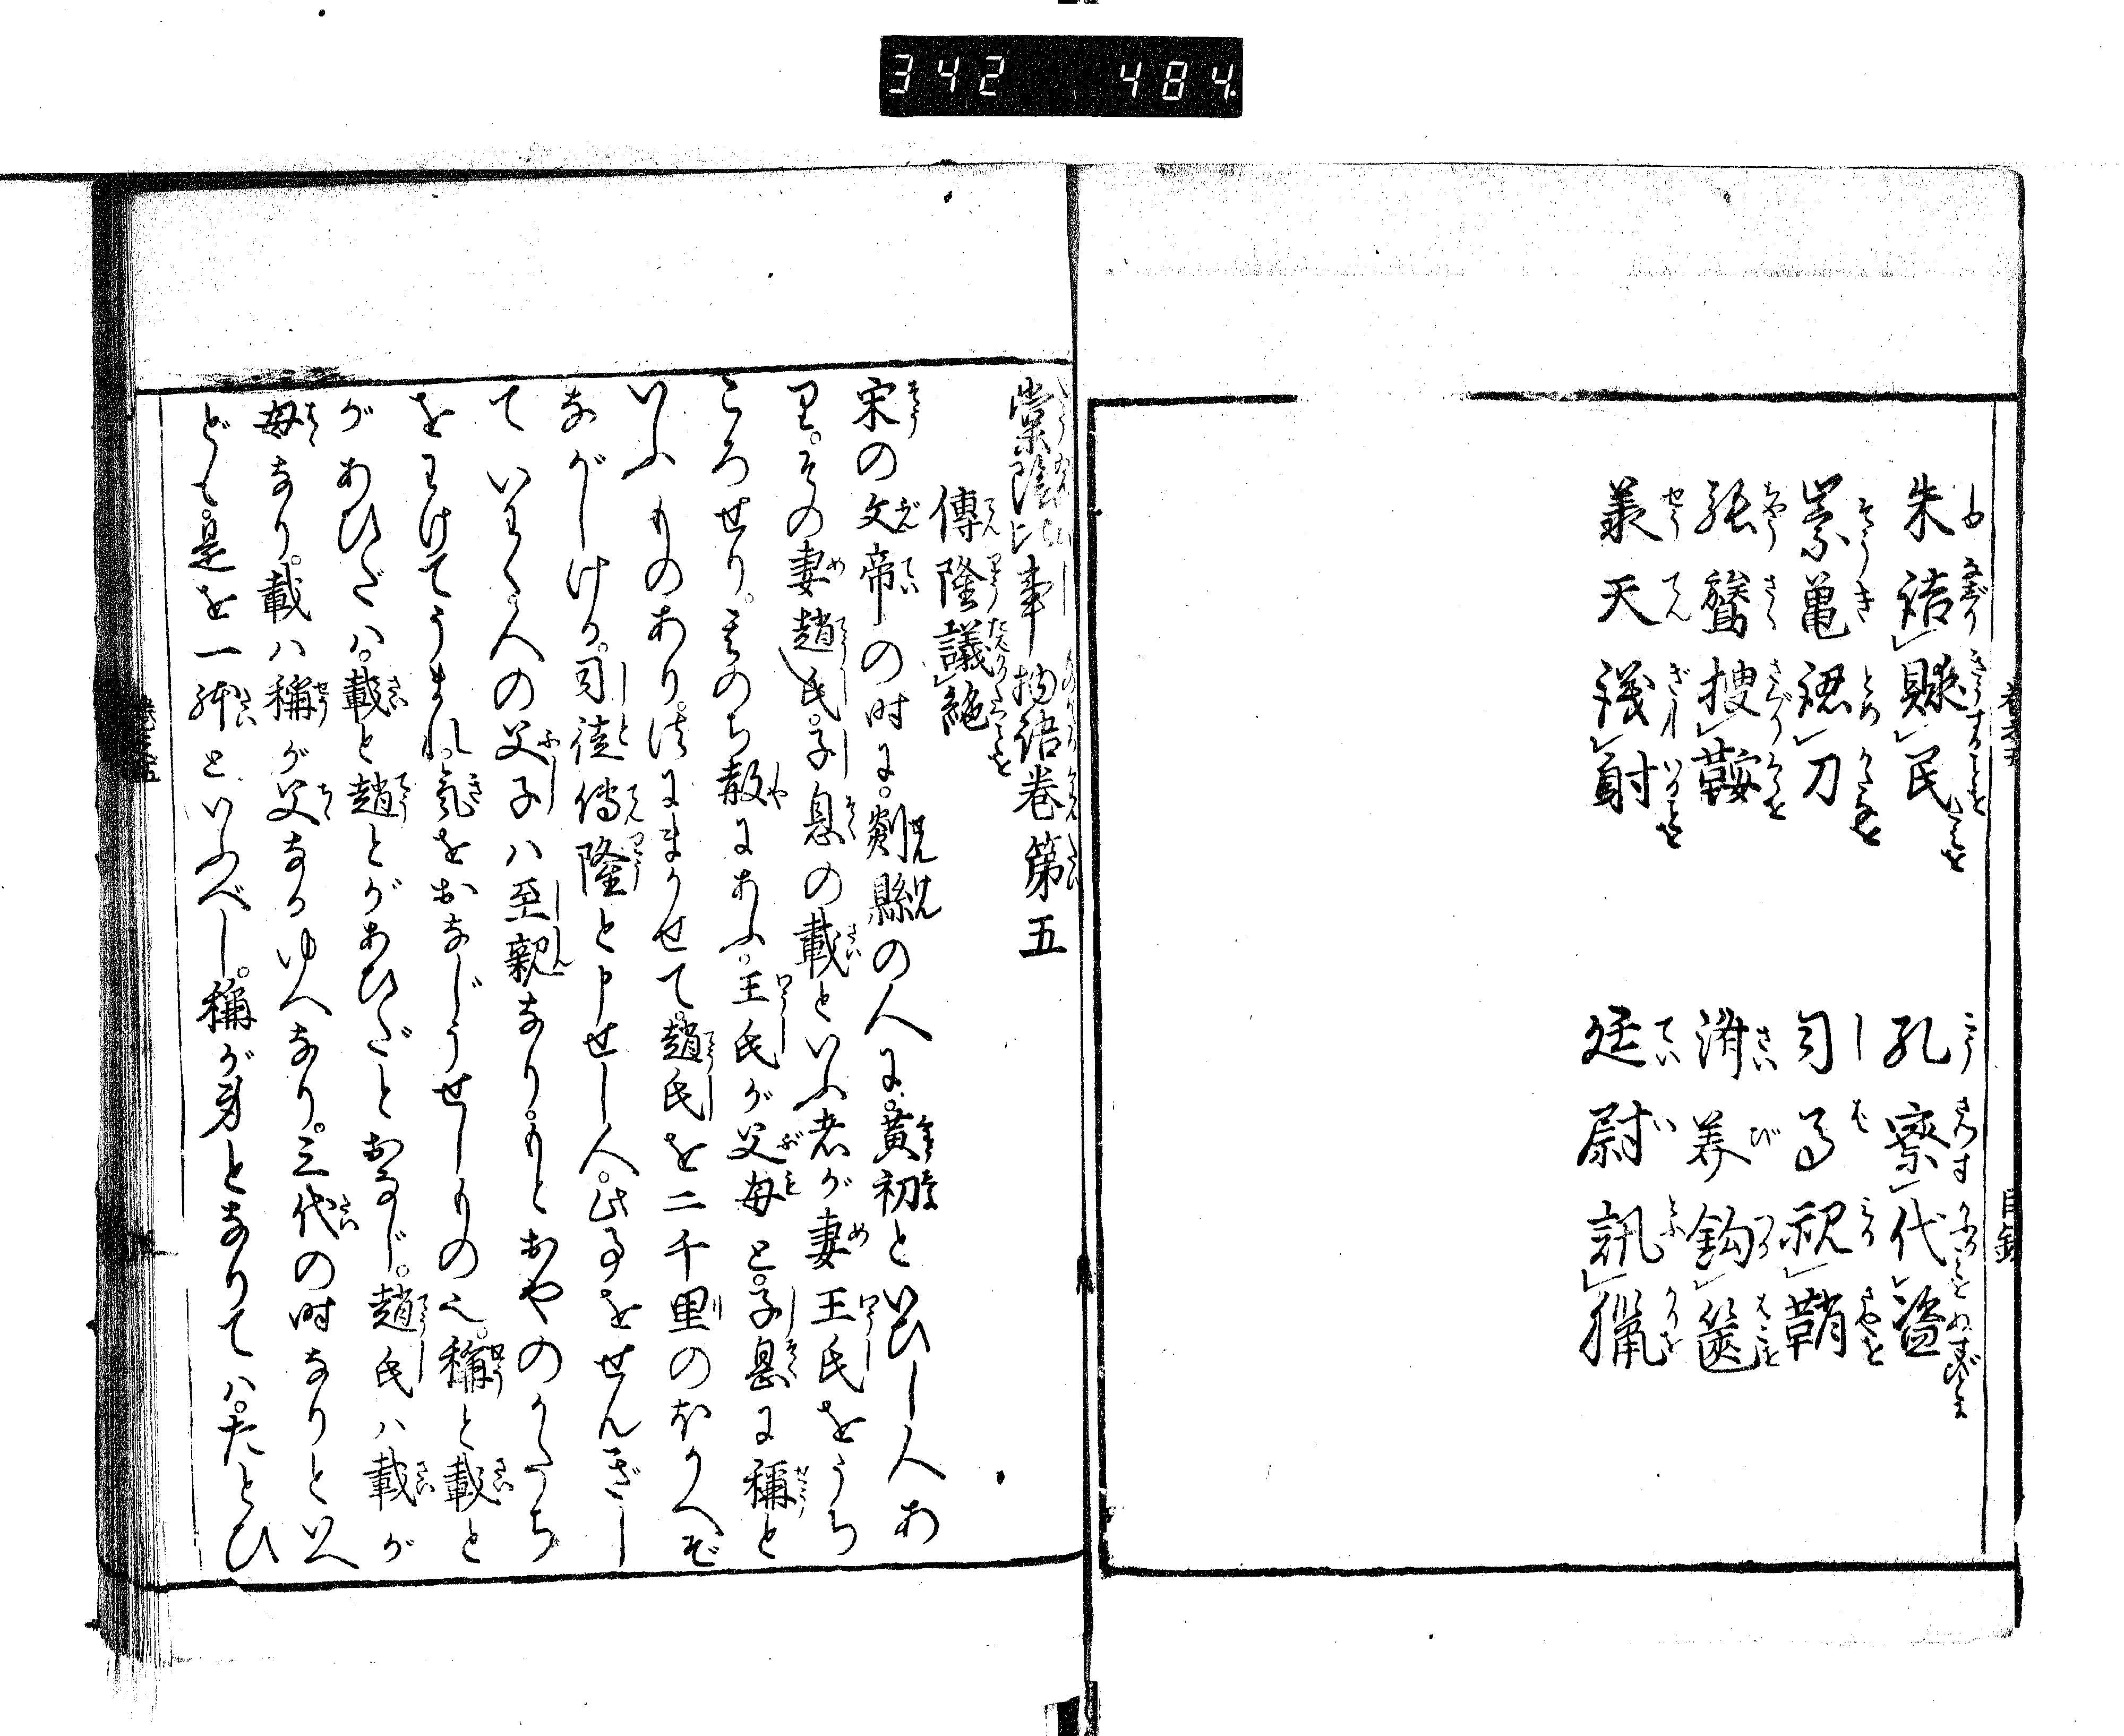 342 484
朱詰賕民
孔察代盗
綦亀認刀
司馬視鞘
張鷟捜鞍
済美鈎篋
蒋天議射
廷尉訊猟
棠陰比事物語巻第五
傅隆議絶
宋の文帝の时に。剡縣の人に。黄初といひし人あ
り。その妻趙氏。子息の載といふ者が妻王氏をうち
ころせり。其のち赦にあふ。王氏が父母と。子息に稱と
いふものあり。法にまかせて。趙氏を二千里のほかへぞ
ながしける。司徒傅隆と申せし人。此事をせんぎし
ていわく。人の父子ハ至親なり。もとおやのかたち
をわけてうまれ。気をおなじうせしもの也。稱と載と
があひだハ。載と趙とがあひだとおなじ。趙氏ハ載が
母なり。載ハ稱が父なるゆへなり。三代の时なりといへ
ども。是を一躰といふべし。稱が身となりてハ。たとひ